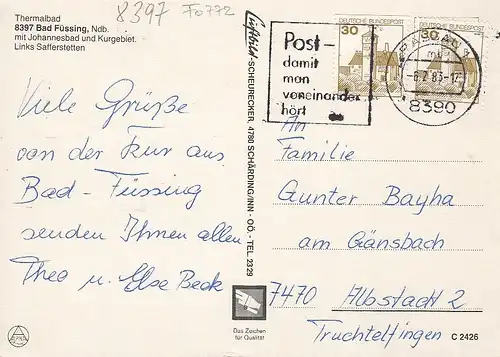 Thermalbad
8397 Bad Füssing, Ndb.
mit Johannesbad und Kurgebiet.
Links Safferstetten
8397 Fo 772
Viele Grüße
von der Kur aus
Bad-Füssing
senden Ihnen allen
Theo u. Else Beck
Luftbild-SCHEURECKER, 4780 SCHÄRDING/INN - OÖ. - TEL. 2329
Das Zeichen
für Qualität
Post-
damit
man
voneinander
hört
30 DEUTSCHE BUNDESPOST
30 DEUTSCHE BUNDESPOST
PASSAU
8390
An
Familie
Gunter Bayha
am Gänsbach
7470 Albstadt 2
Truchtelfingen
C 2426